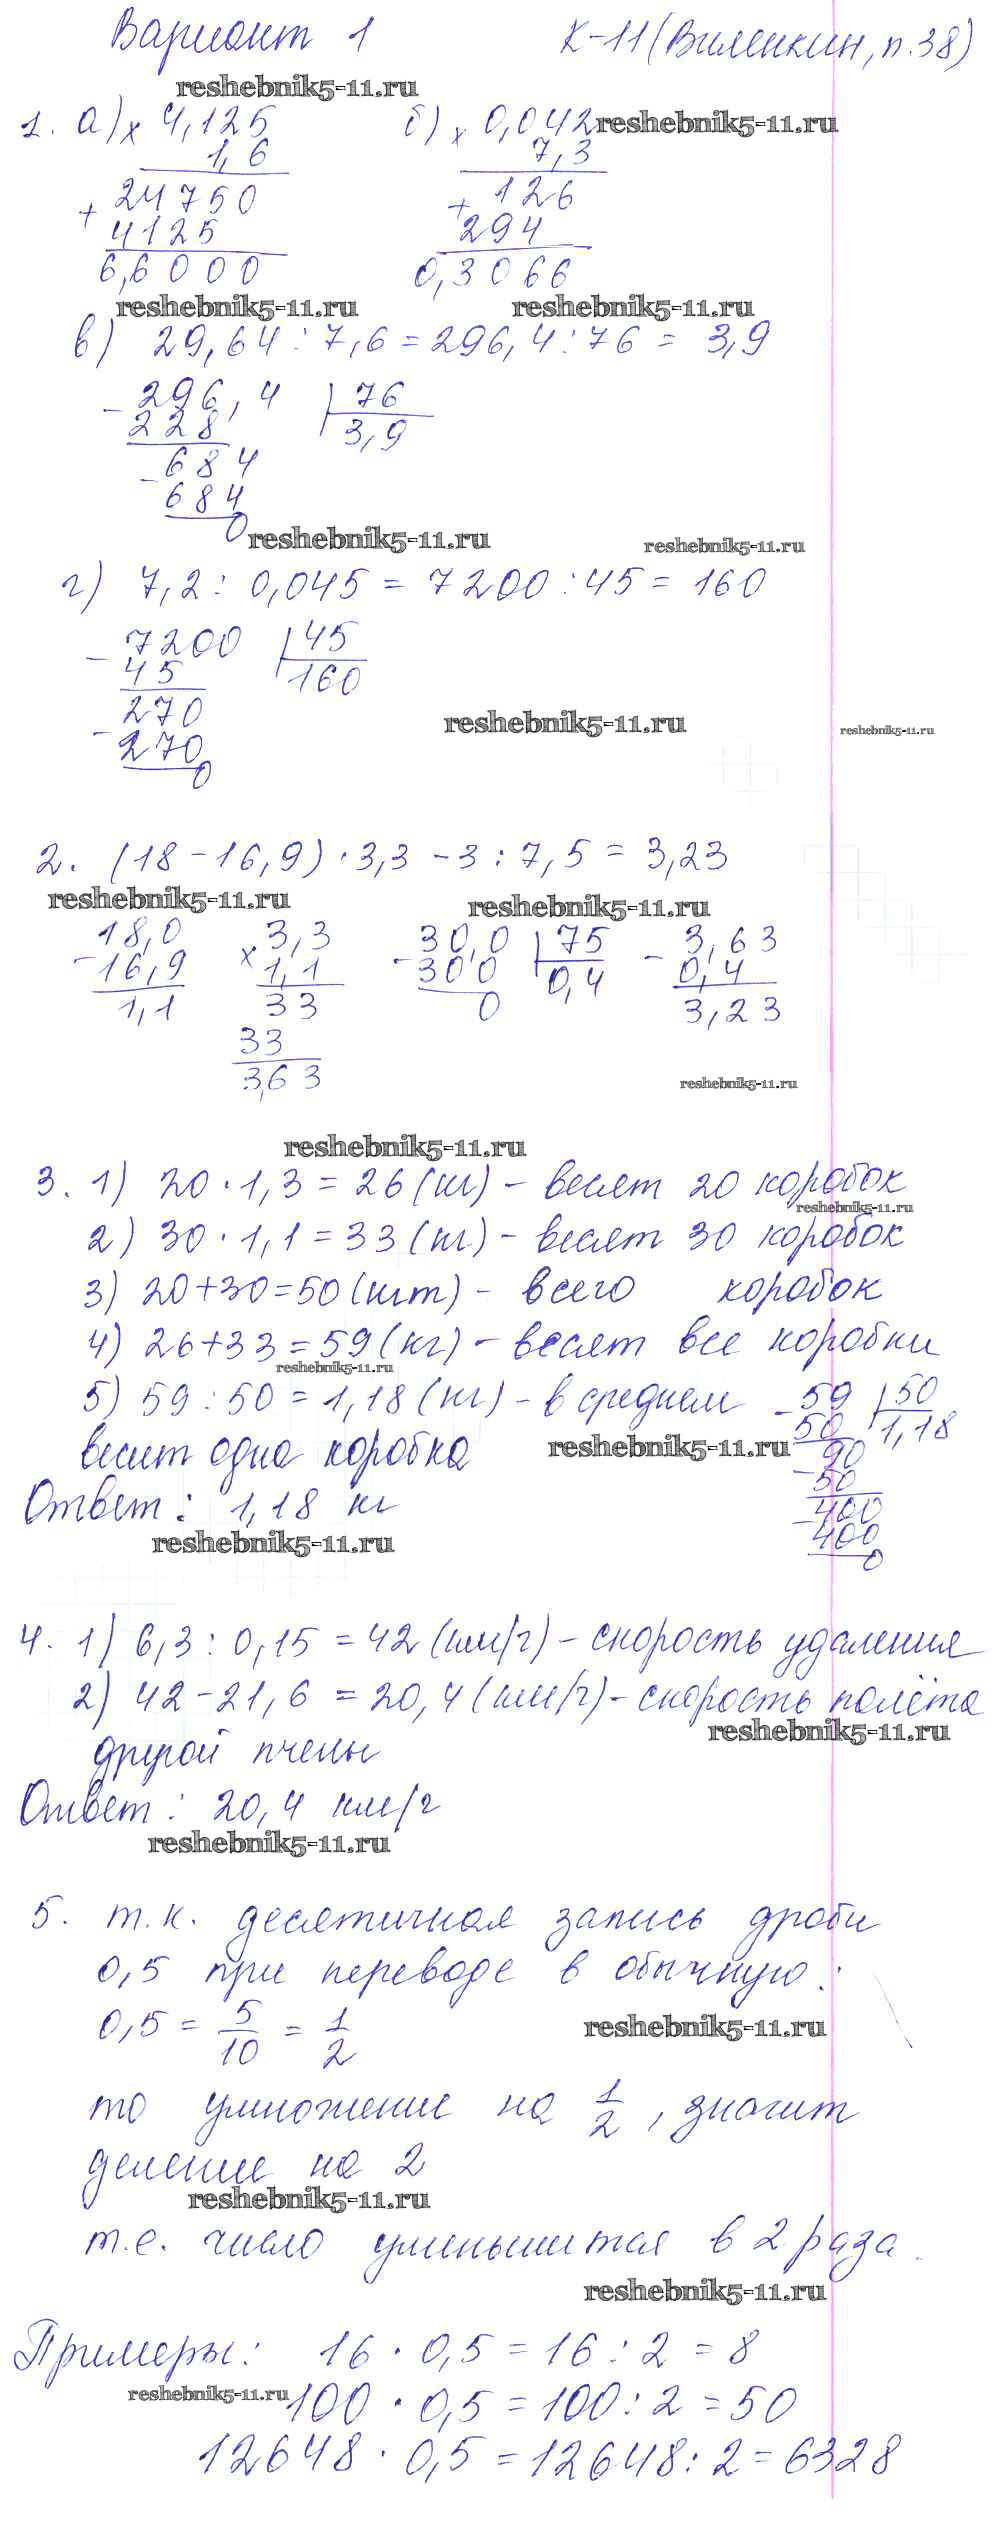 Вариант 1 К-11 (Виленкин, п.38)
reshebnik5-11.ru
1. а) × 4,125 б) × 0,042 reshebnik5-11.ru
1,6 7,3
+ 24750 + 126
4125 294
6,6000 0,3066
reshebnik5-11.ru reshebnik5-11.ru
в) 29,64 : 7,6 = 296,4 : 76 = 3,9
- 296,4 76
228 3,9
- 684
684
0 reshebnik5-11.ru reshebnik5-11.ru
г) 7,2 : 0,045 = 7200 : 45 = 160
- 7200 45
45 160
270
reshebnik5-11.ru reshebnik5-11.ru
- 270
0
2. (18 - 16,9) · 3,3 - 3 : 7,5 = 3,23
reshebnik5-11.ru reshebnik5-11.ru
- 18,0 × 3,3 - 30,0 75 - 3,63
16,9 1,1 300 0,4 0,4
1,1 33 0 3,23
33
3,63
reshebnik5-11.ru
reshebnik5-11.ru
3. 1) 20 · 1,3 = 26 (кг) - весят 20 коробок
reshebnik5-11.ru
2) 30 · 1,1 = 33 (кг) - весят 30 коробок
3) 20+30=50 (шт) - всего коробок
4) 26+33=59 (кг) - весят все коробки
reshebnik5-11.ru
5) 59 : 50 = 1,18 (кг) - в среднем - 59 50
весит одна коробка reshebnik5-11.ru 50 1,18
90
- 50
Ответ: 1,18 кг - 400
reshebnik5-11.ru 400
0
4. 1) 6,3 : 0,15 = 42 (км/г) - скорость удаления
2) 42 - 21,6 = 20,4 (км/г) - скорость полёта
reshebnik5-11.ru
другой пчелы
Ответ: 20,4 км/г
reshebnik5-11.ru
5. т.к. десятичная запись дроби
0,5 при переводе в обычную:
0,5 = 5/10 = 1/2 reshebnik5-11.ru
то умножение на 1/2, значит
деление на 2
reshebnik5-11.ru
т.е. число уменьшится в 2 раза.
reshebnik5-11.ru
Примеры: 16 · 0,5 = 16 : 2 = 8
reshebnik5-11.ru
100 · 0,5 = 100 : 2 = 50
12648 · 0,5 = 12648 : 2 = 6328